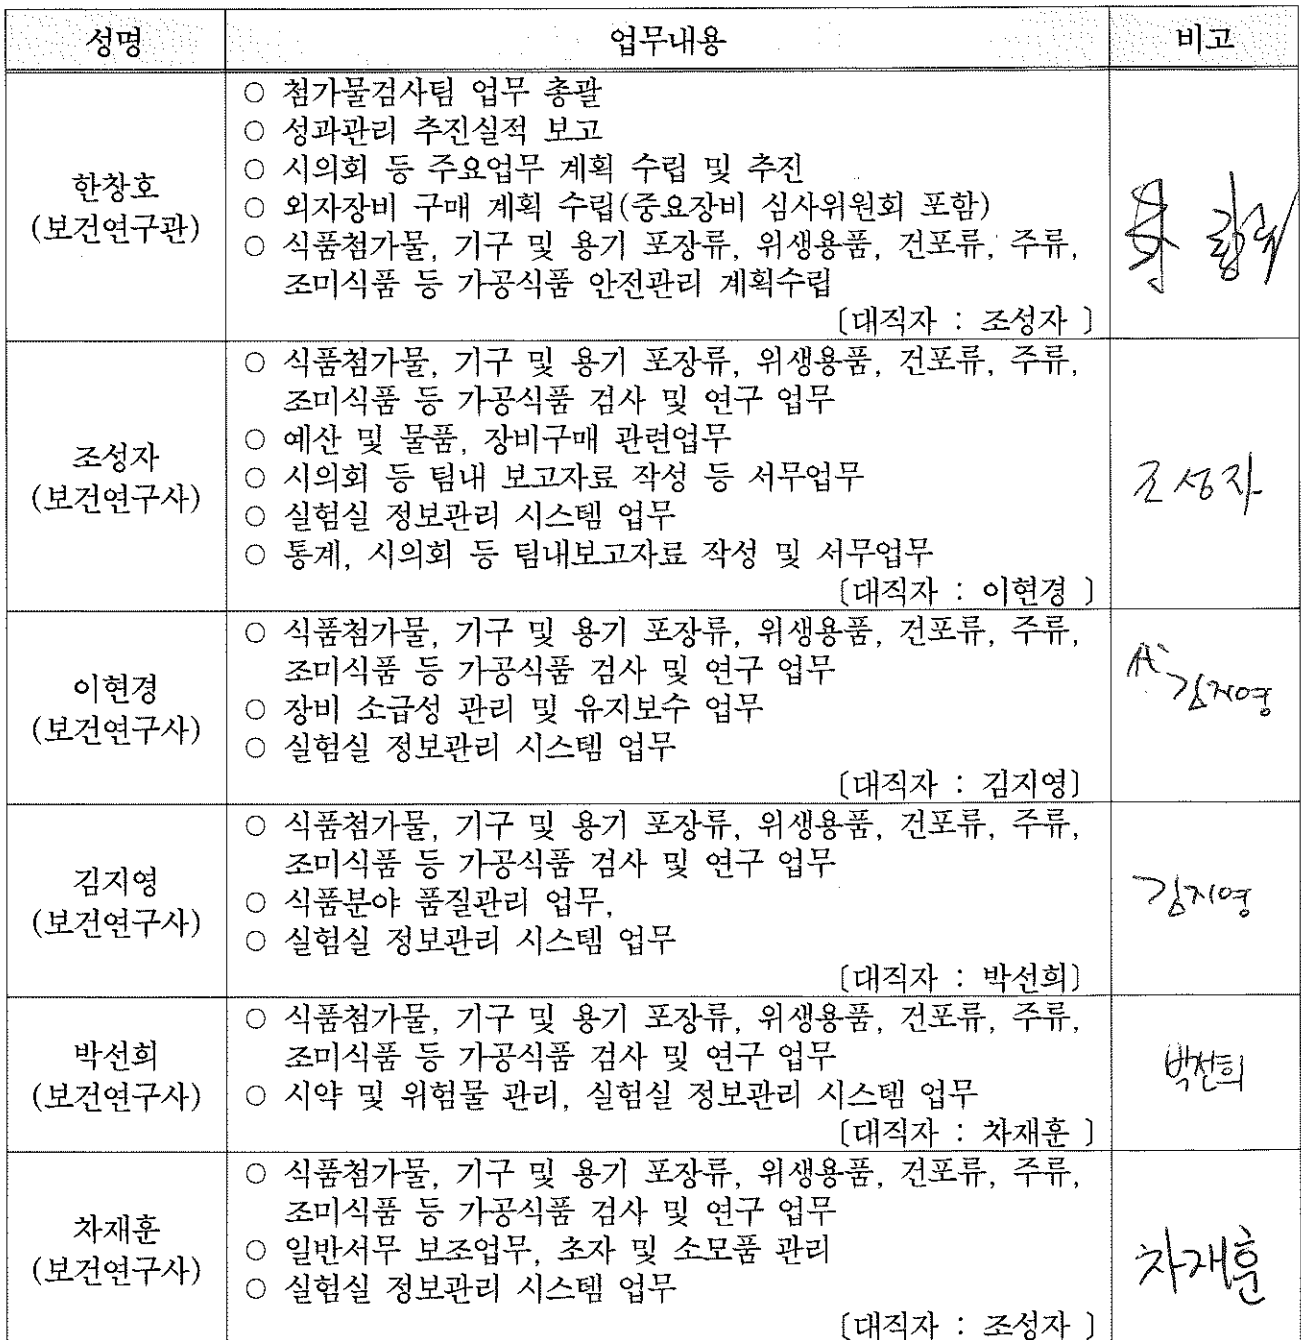 성명 업무내용 비고
한창호
(보건연구관)
○ 첨가물검사팀 업무 총괄
○ 성과관리 추진실적 보고
○ 시의회 등 주요업무 계획 수립 및 추진
○ 외자장비 구매 계획 수립(중요장비 심사위원회 포함)
○ 식품첨가물, 기구 및 용기 포장류, 위생용품, 건포류, 주류,
조미식품 등 가공식품 안전관리 계획수립
〔대직자 : 조성자 〕
조성자
(보건연구사)
○ 식품첨가물, 기구 및 용기 포장류, 위생용품, 건포류, 주류,
조미식품 등 가공식품 검사 및 연구 업무
○ 예산 및 물품, 장비구매 관련업무
○ 시의회 등 팀내 보고자료 작성 등 서무업무
○ 실험실 정보관리 시스템 업무
○ 통계, 시의회 등 팀내보고자료 작성 및 서무업무
〔대직자 : 이현경 〕
조성자
이현경
(보건연구사)
○ 식품첨가물, 기구 및 용기 포장류, 위생용품, 건포류, 주류,
조미식품 등 가공식품 검사 및 연구 업무
○ 장비 소급성 관리 및 유지보수 업무
○ 실험실 정보관리 시스템 업무
〔대직자 : 김지영〕
김지영
김지영
(보건연구사)
○ 식품첨가물, 기구 및 용기 포장류, 위생용품, 건포류, 주류,
조미식품 등 가공식품 검사 및 연구 업무
○ 식품분야 품질관리 업무,
○ 실험실 정보관리 시스템 업무
〔대직자 : 박선희〕
김지영
박선희
(보건연구사)
○ 식품첨가물, 기구 및 용기 포장류, 위생용품, 건포류, 주류,
조미식품 등 가공식품 검사 및 연구 업무
○ 시약 및 위험물 관리, 실험실 정보관리 시스템 업무
〔대직자 : 차재훈 〕
박선희
차재훈
(보건연구사)
○ 식품첨가물, 기구 및 용기 포장류, 위생용품, 건포류, 주류,
조미식품 등 가공식품 검사 및 연구 업무
○ 일반서무 보조업무, 초자 및 소모품 관리
○ 실험실 정보관리 시스템 업무
〔대직자 : 조성자 〕
차재훈